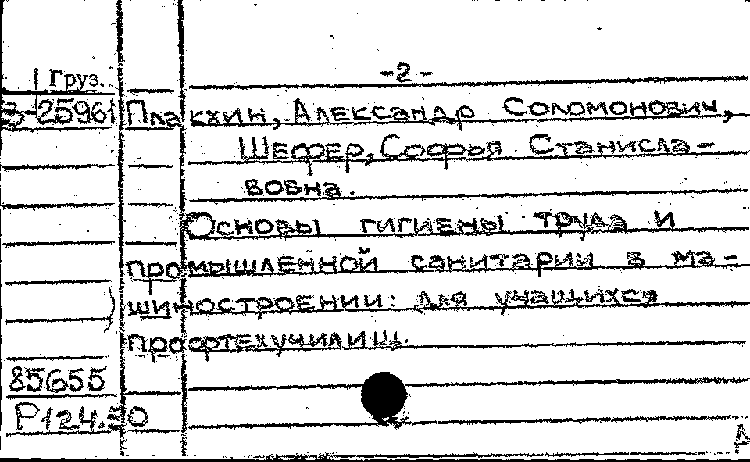 -2-
Груз.
3-25961 Плакхин, Александр Соломонович,
Шефер, Софья Станисла-
вовна.
Основы гигиены труда и
промышленной санитарии в ма-
шиностроении: для учащихся
профтехучилищ.
85655
Р124.50